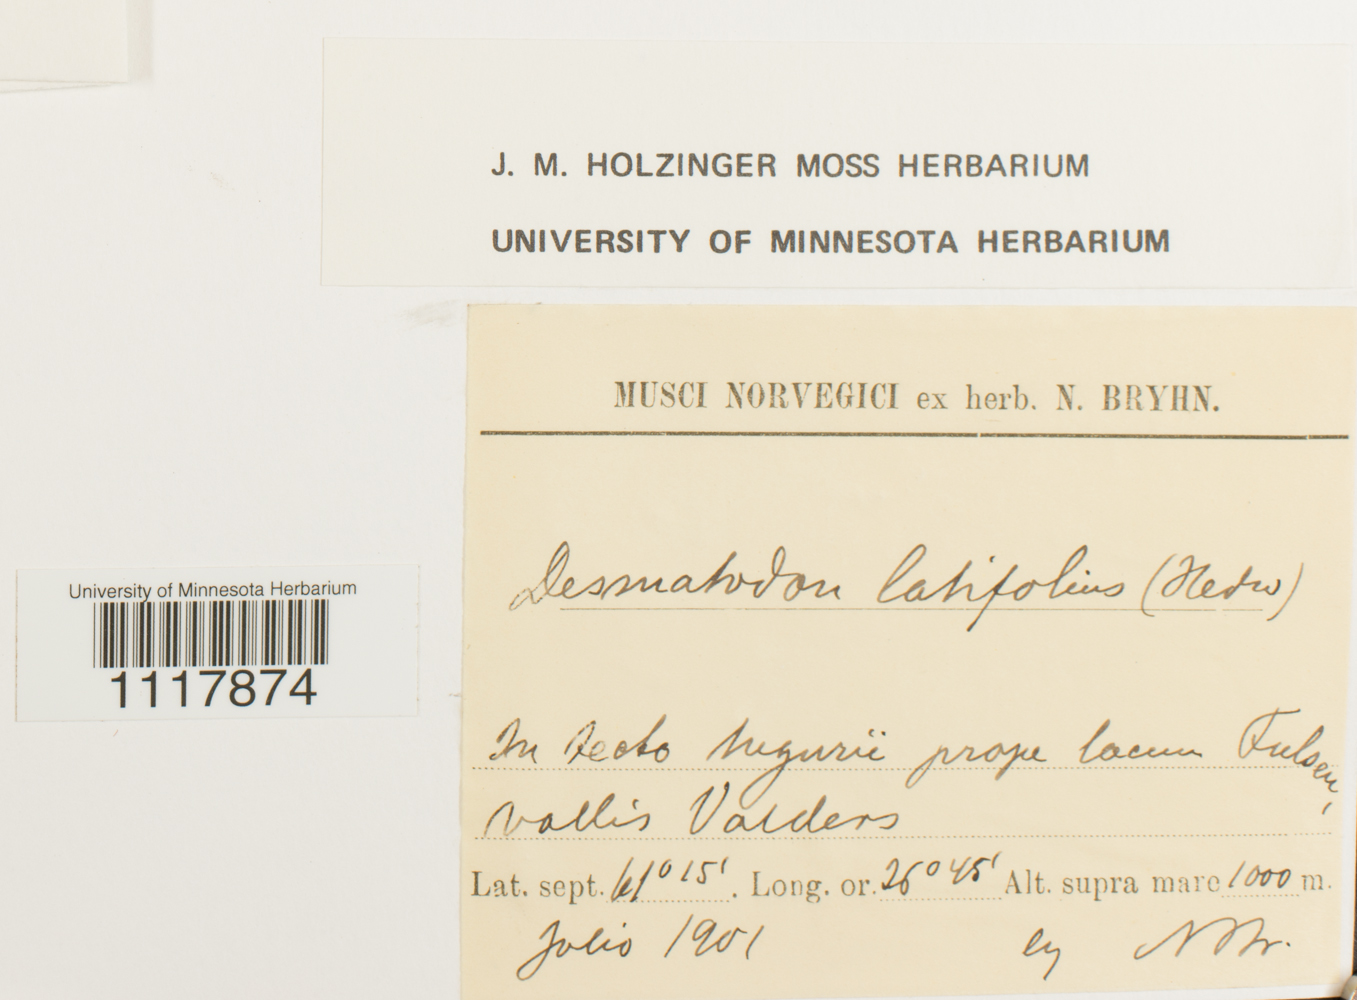 J. M. HOLZINGER MOSS HERBARIUM
UNIVERSITY OF MINNESOTA HERBARIUM
MUSCI NORVEGICI ex herb. N. BRYHN.
Desmatodon latifolius (Hedw)
In tecto tugurii prope lacum Fulsen,
vallis Valders
Lat. sept. 61° 15'. Long. or. 26° 45' Alt. supra mare 1000 m.
Julio 1901
University of Minnesota Herbarium
1117874